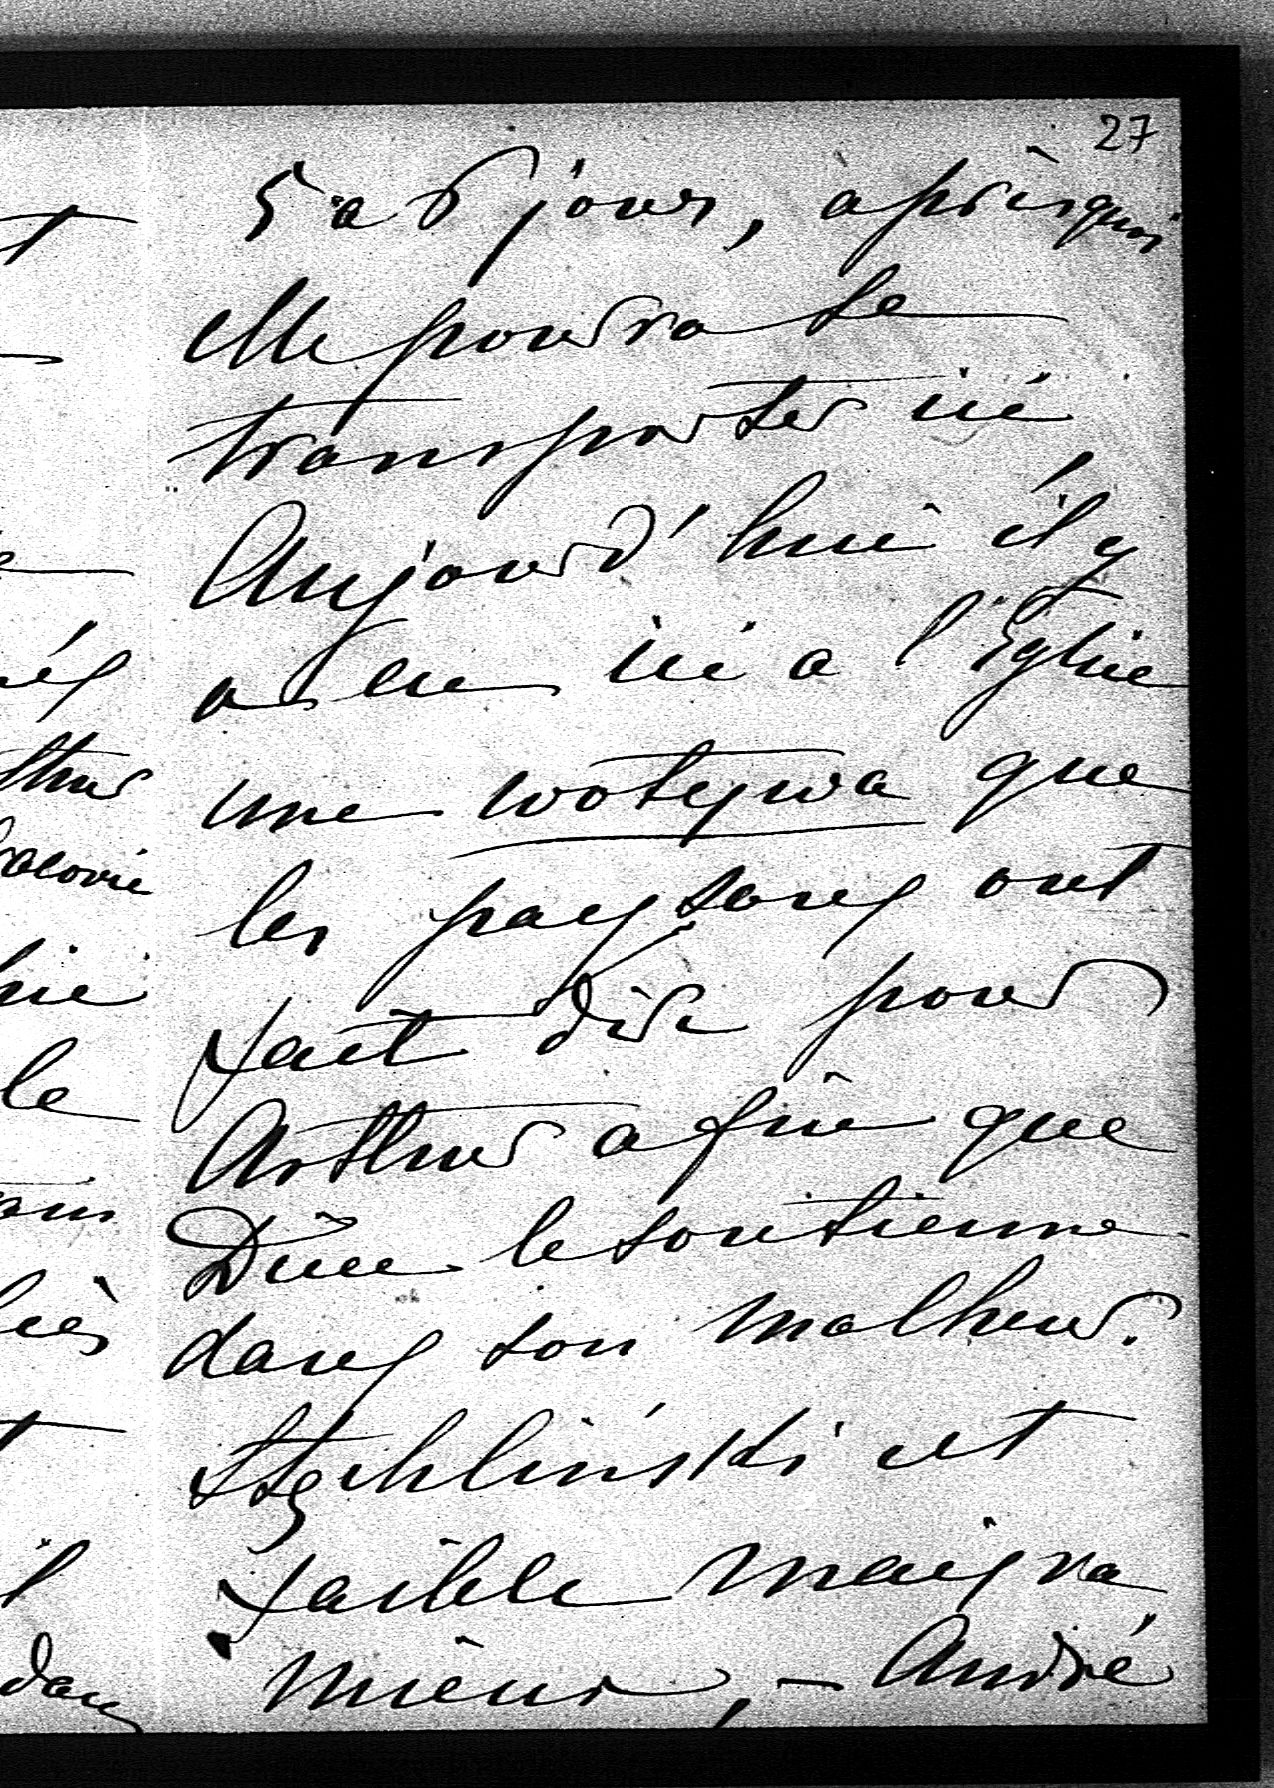 27
5 a 6 jours, après quoi
elle pourra se
transporter ici
Aujourd'hui il y
a eu ici a l'Eglise
une wotywa que
les paysans ont
fait dire pour
Arthur afin que
Dieu le soutienne
dans son malheur.
Stechliński est
faible mais va
mieux, – André